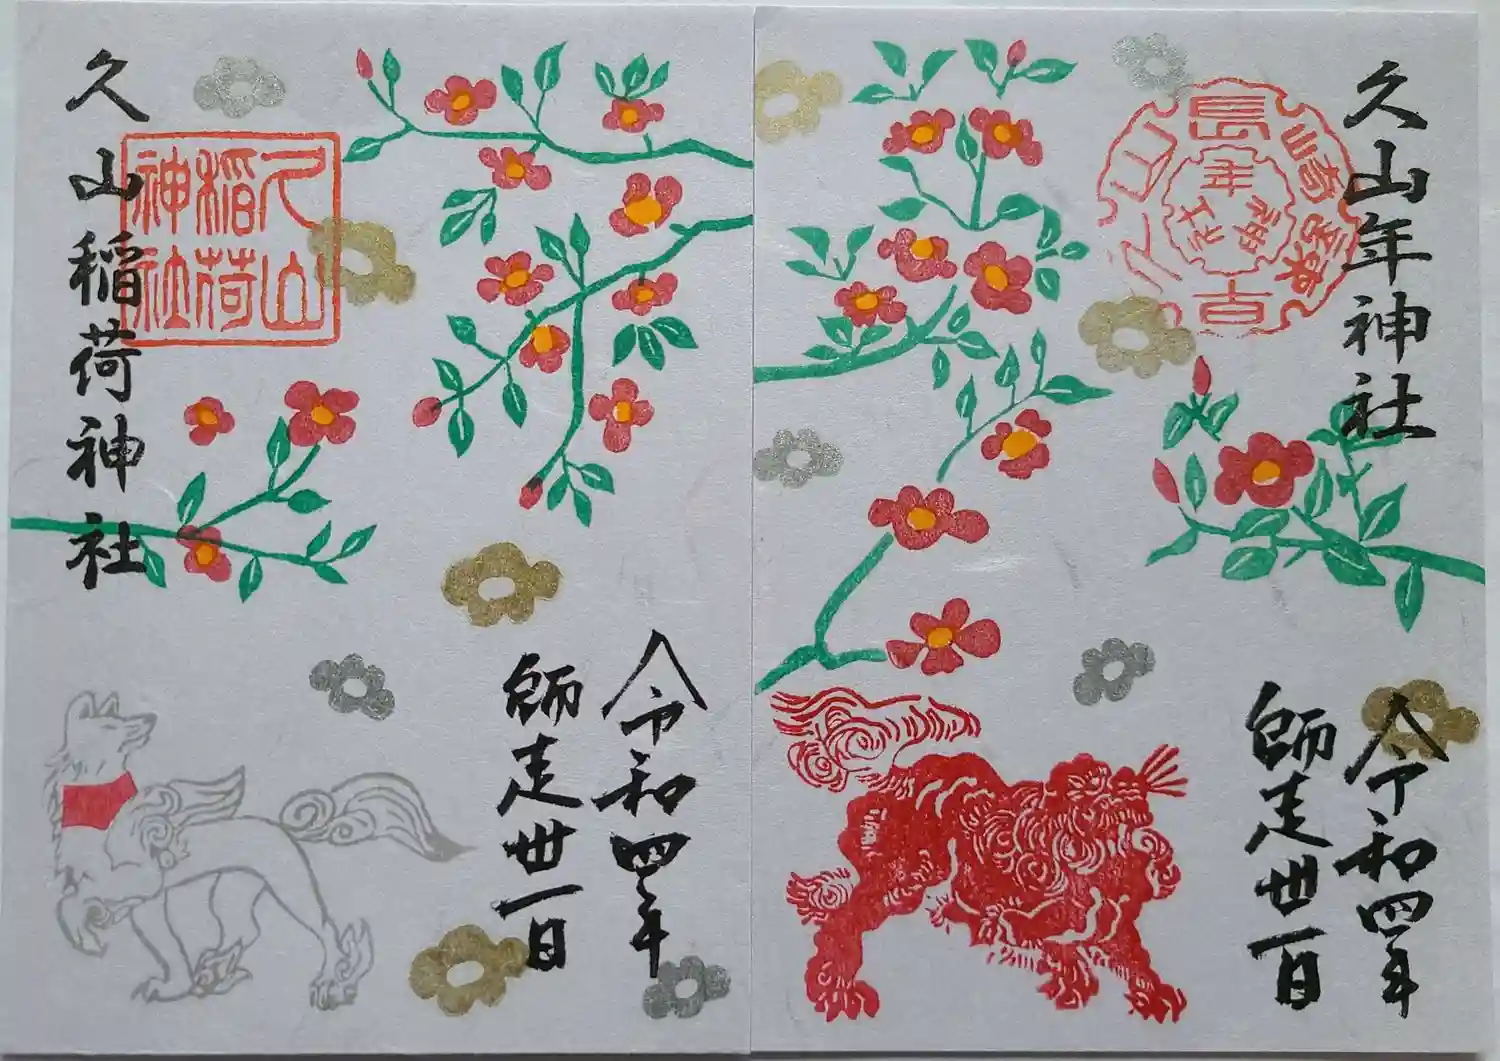 久山年神社
長崎諫早市久山
年神社
令和四年
師走丗一日
久山稲荷神社
久山
稲荷
神社
令和四年
師走丗一日